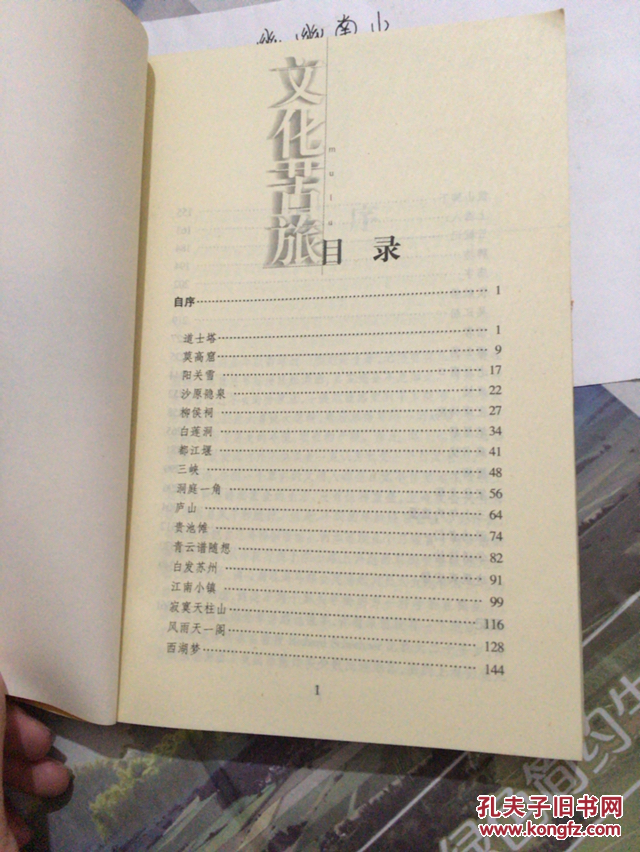 幽幽南山
文化苦旅
mulu
目录
自序……1
道士塔……1
莫高窟……9
阳关雪……17
沙原隐泉……22
柳侯祠……27
白莲洞……34
都江堰……41
三峡……48
洞庭一角……56
庐山……64
贵池傩……74
青云谱随想……82
白发苏州……91
江南小镇……99
寂寞天柱山……116
风雨天一阁……128
西湖梦……144
1
绿色简约生
孔夫子旧书网
www.kongfz.com